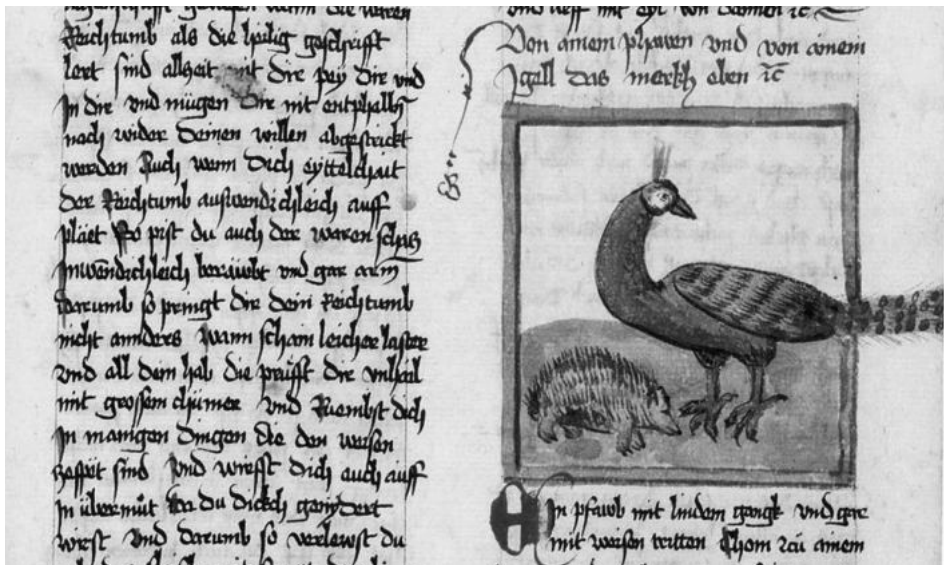 Reichtumb als die heilig geschrifft
lert sind allzeit mit dir pey dir vnd
in dir vnd mügen dir nit entphalln
noch wider deinen willen abgestrickt
werden Auch wann dich eyttelchait
der Reichtumb auswendichleich auff
plaet So pist du auch der waren schätz
Inwendichleich beraubt vnd gar arm
darumb so pringt dir dein Reichtumb
nicht annders wann scham leicher laster
vnd all dein hab die prüfft dir vnhail
mit grossem chümer vnd Ruembst dich
in manigen dingen die den weisen
sind vnd wirfft dich auch auff
in übermüt du dickch genydert
wirst vnd darumb so verlewst du
vnd von
Von ainem phawen vnd von ainem
Igell das merkch eben ꝛc
Ein pfawb mit lindem gangk vnd gar
mit weisen tritten Chom zcu ainem